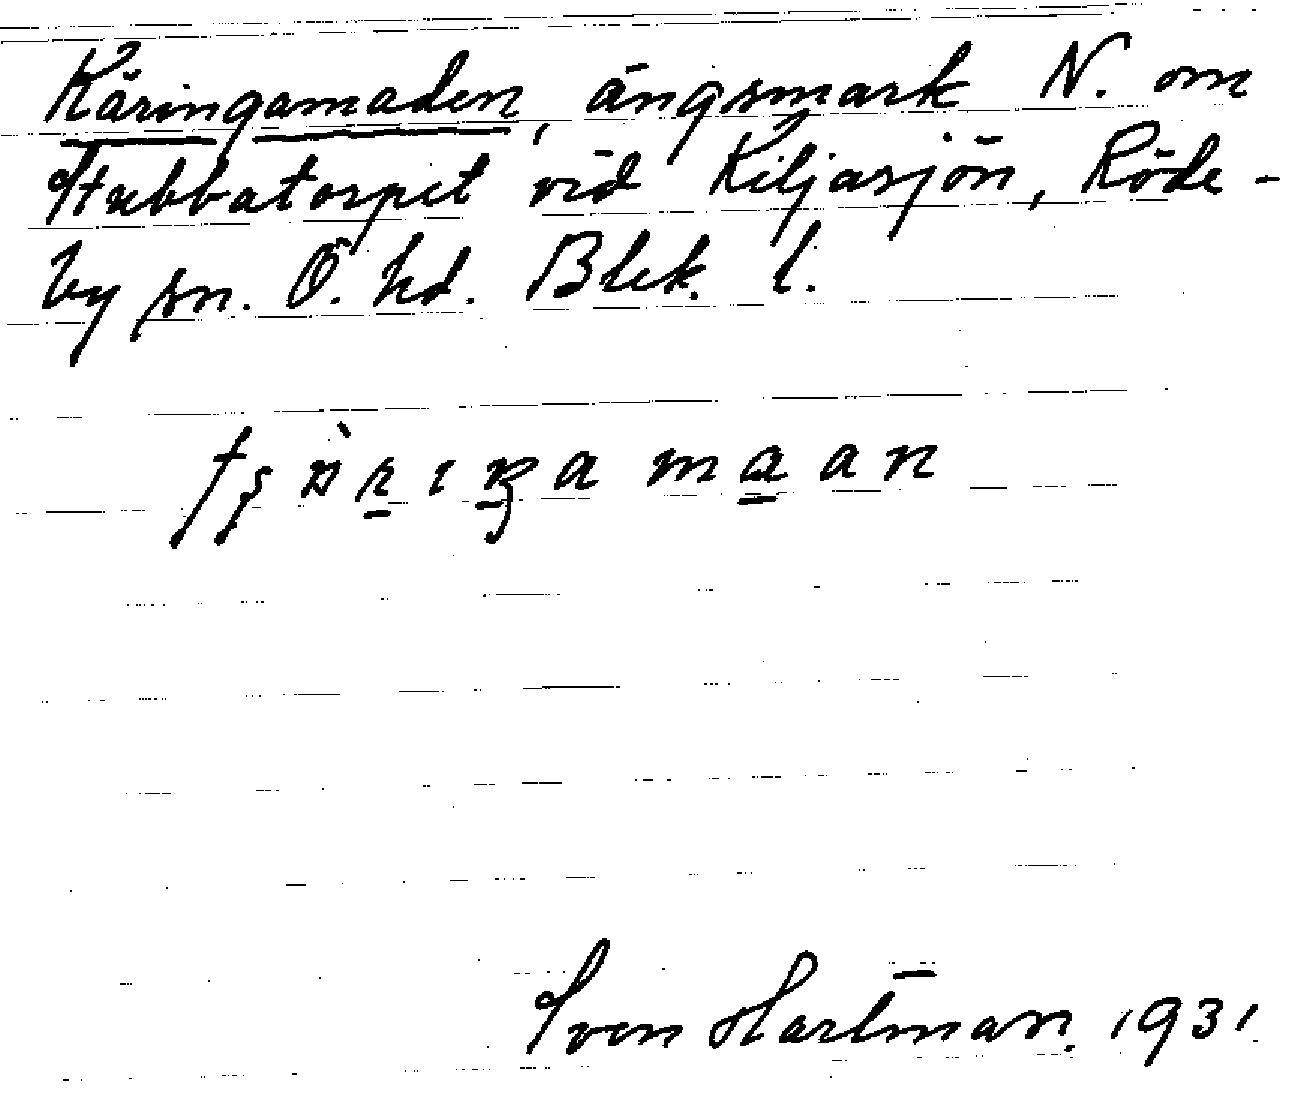 Käringamaden, ängsmark N. om
Stubbatorpet vid Kiljasjön, Röde-
by sn. Ö. hd. Blek. l.
Sven Hartman. 1931.